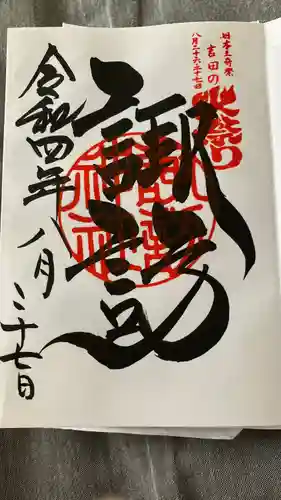 日本三奇祭
吉田の
火祭り
八月二十六二十七日
諏訪
諏訪神社
令和四年八月二十七日